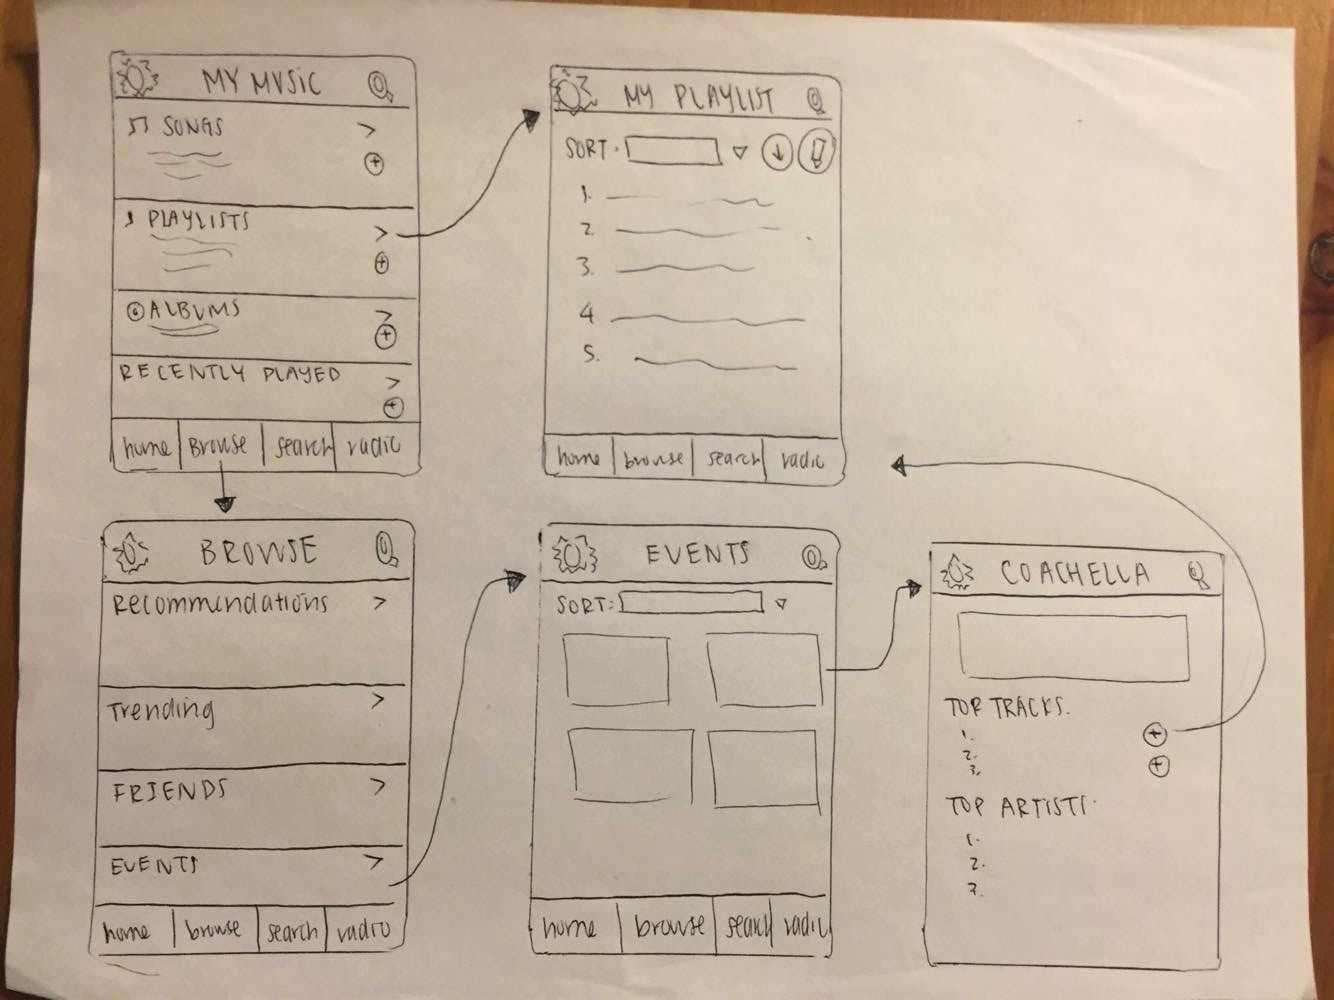 MY MUSIC
SONGS
PLAYLISTS
ALBUMS
RECENTLY PLAYED
home Browse search radio
MY PLAYLIST
SORT:
1.
2.
3.
4
5.
home browse search radio
BROWSE
Recommendations
Trending
FRIENDS
EVENTS
home browse search radio
EVENTS
SORT:
home browse search radio
COACHELLA
TOP TRACKS.
1.
2.
3.
TOP ARTISTS.
1.
2.
3.